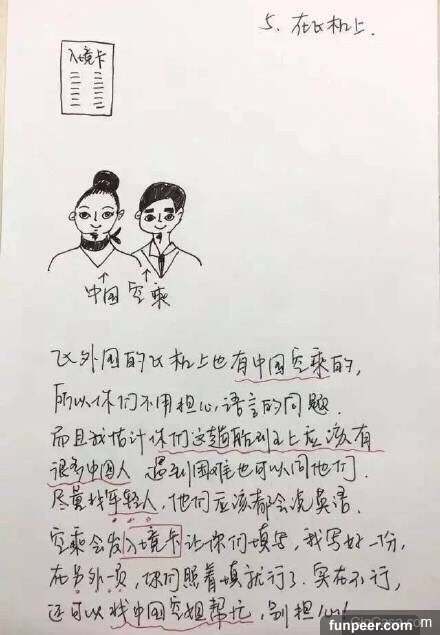 5、在飞机上.
入境卡
中国空乘
飞外国的飞机上也有中国空乘的,
所以你们不用担心语言的问题.
而且我估计你们这趟航班上应该有
很多中国人 遇到困难也可以问他们.
尽量找年轻人, 他们应该都会说英语.
空乘会发入境卡让你们填写, 我写好一份,
在另外一页, 你们照着填就行了. 实在不行,
还可以找中国空姐帮忙, 别担心!
GigCasa.com
funpeer.com